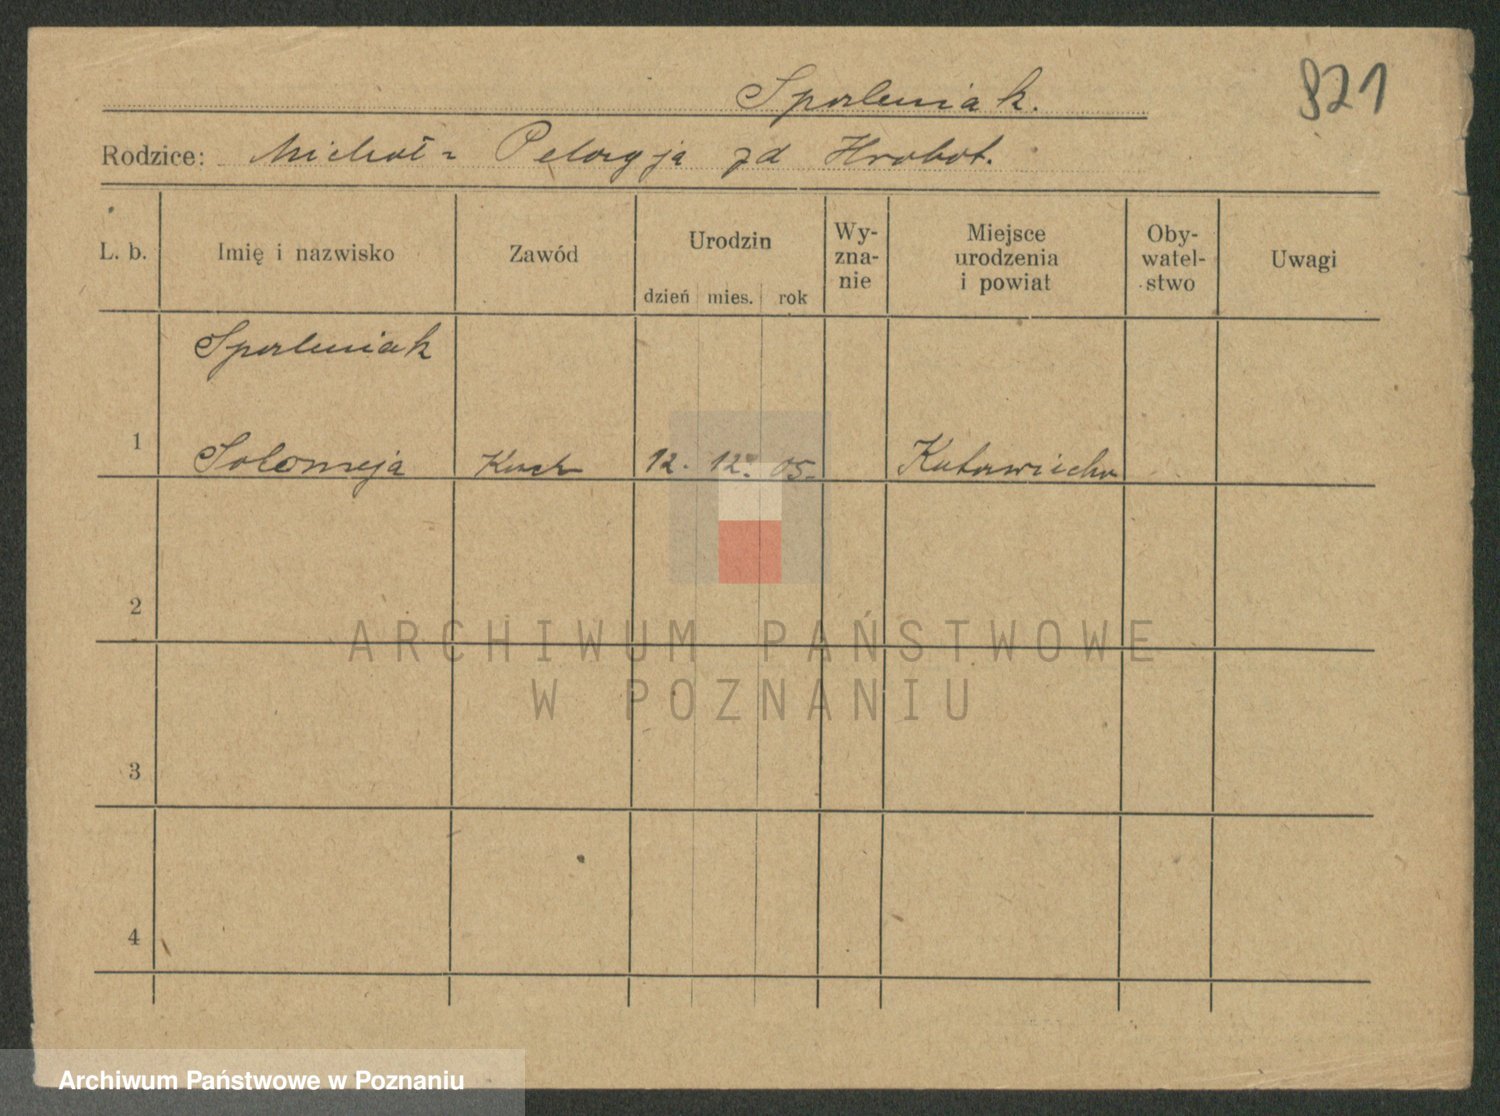 Sporleniak.
821
Rodzice: Michał - Pelagja zd Hrobot.
L. b.
Imię i nazwisko
Zawód
Urodzin
dzień mies. rok
Wy-
zna-
nie
Miejsce
urodzenia
i powiat
Oby-
watel-
stwo
Uwagi
Sporleniak
1 Solomeja 12. 12. 05.
2
3
4
ARCHIWUM PAŃSTWOWE
W POZNANIU
Archiwum Państwowe w Poznaniu